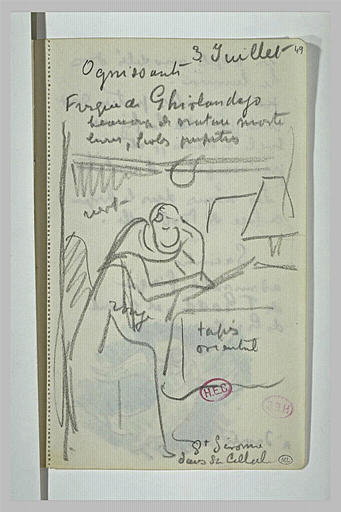 3 Juillet
49
Ognissanti
Fresque de Ghirlandajo
beaucoup de nature morte
livres, fioles pupitres
vert
rouge
tapis
oriental
H.E.C
St Jérome
dans sa Cellule
ML